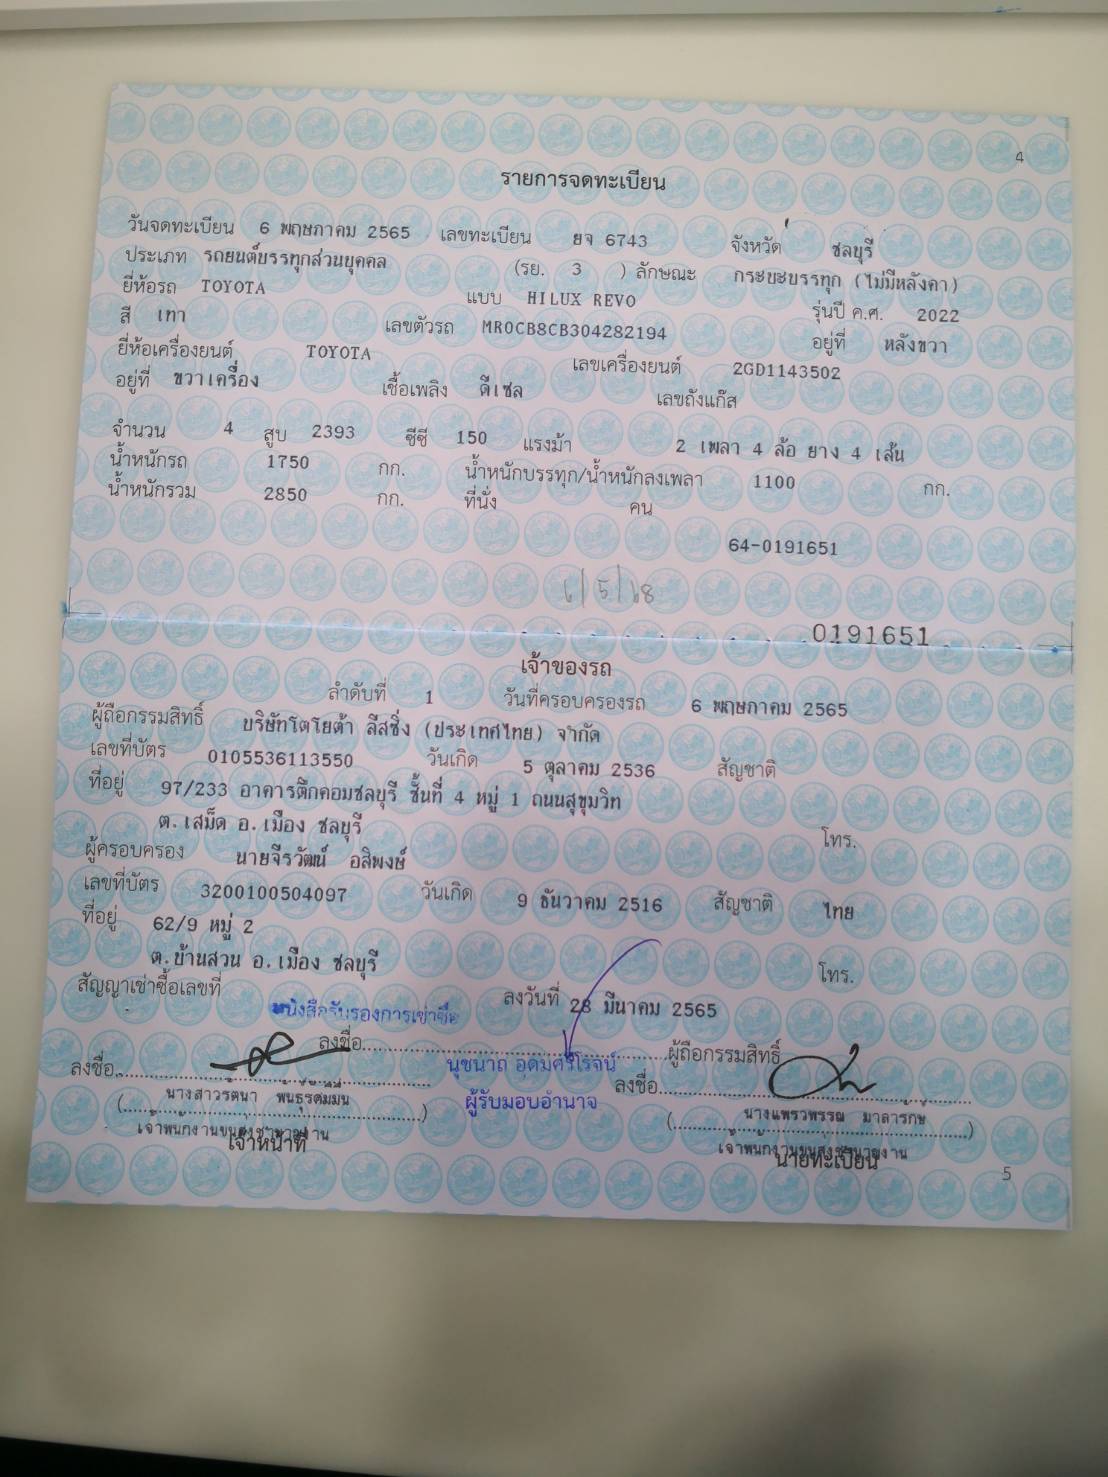 4
รายการจดทะเบียน
วันจดทะเบียน 6 พฤษภาคม 2565 เลขทะเบียน ยจ 6743 จังหวัด ชลบุรี
ประเภท รถยนต์บรรทุกส่วนบุคคล (รย. 3 ) ลักษณะ กระบะบรรทุก (ไม่มีหลังคา)
ยี่ห้อรถ TOYOTA แบบ HILUX REVO รุ่นปี ค.ศ. 2022
สี เทา เลขตัวรถ MR0CB8CB304282194 อยู่ที่ หลังขวา
ยี่ห้อเครื่องยนต์ TOYOTA เลขเครื่องยนต์ 2GD1143502
อยู่ที่ ขวาเครื่อง เชื้อเพลิง ดีเซล เลขถังแก๊ส
จำนวน 4 สูบ 2393 ซีซี 150 แรงม้า 2 เพลา 4 ล้อ ยาง 4 เส้น
น้ำหนักรถ 1750 กก. น้ำหนักบรรทุก/น้ำหนักลงเพลา 1100 กก.
น้ำหนักรวม 2850 กก. ที่นั่ง คน
64-0191651
6/5/68
0191651
เจ้าของรถ
ลำดับที่ 1 วันที่ครอบครองรถ 6 พฤษภาคม 2565
ผู้ถือกรรมสิทธิ์ บริษัทโตโยต้า ลีสซิ่ง (ประเทศไทย) จำกัด
เลขที่บัตร 0105536113550 วันเกิด 5 ตุลาคม 2536 สัญชาติ
ที่อยู่ 97/233 อาคารตึกคอมชลบุรี ชั้นที่ 4 หมู่ 1 ถนนสุขุมวิท
ต.เสม็ด อ.เมือง ชลบุรี โทร.
ผู้ครอบครอง นายจีรวัฒน์ อสิพงษ์
เลขที่บัตร 3200100504097 วันเกิด 9 ธันวาคม 2516 สัญชาติ ไทย
ที่อยู่ 62/9 หมู่ 2
ต.บ้านสวน อ.เมือง ชลบุรี โทร.
สัญญาเช่าซื้อเลขที่ หนังสือรับรองการเช่าซื้อ ลงวันที่ 28 มีนาคม 2565
ลงชื่อ ผู้ถือกรรมสิทธิ์
นุชนาถ อุดมศรีโรจน์
ผู้รับมอบอำนาจ
ลงชื่อ ลงชื่อ
(นางสาวรัตนา) (นางแพรวพรรณ มาลารักษ์)
เจ้าพนักงานขนส่งชำนาญงาน เจ้าพนักงานขนส่งชำนาญงาน
เจ้าหน้าที่ นายทะเบียน
5